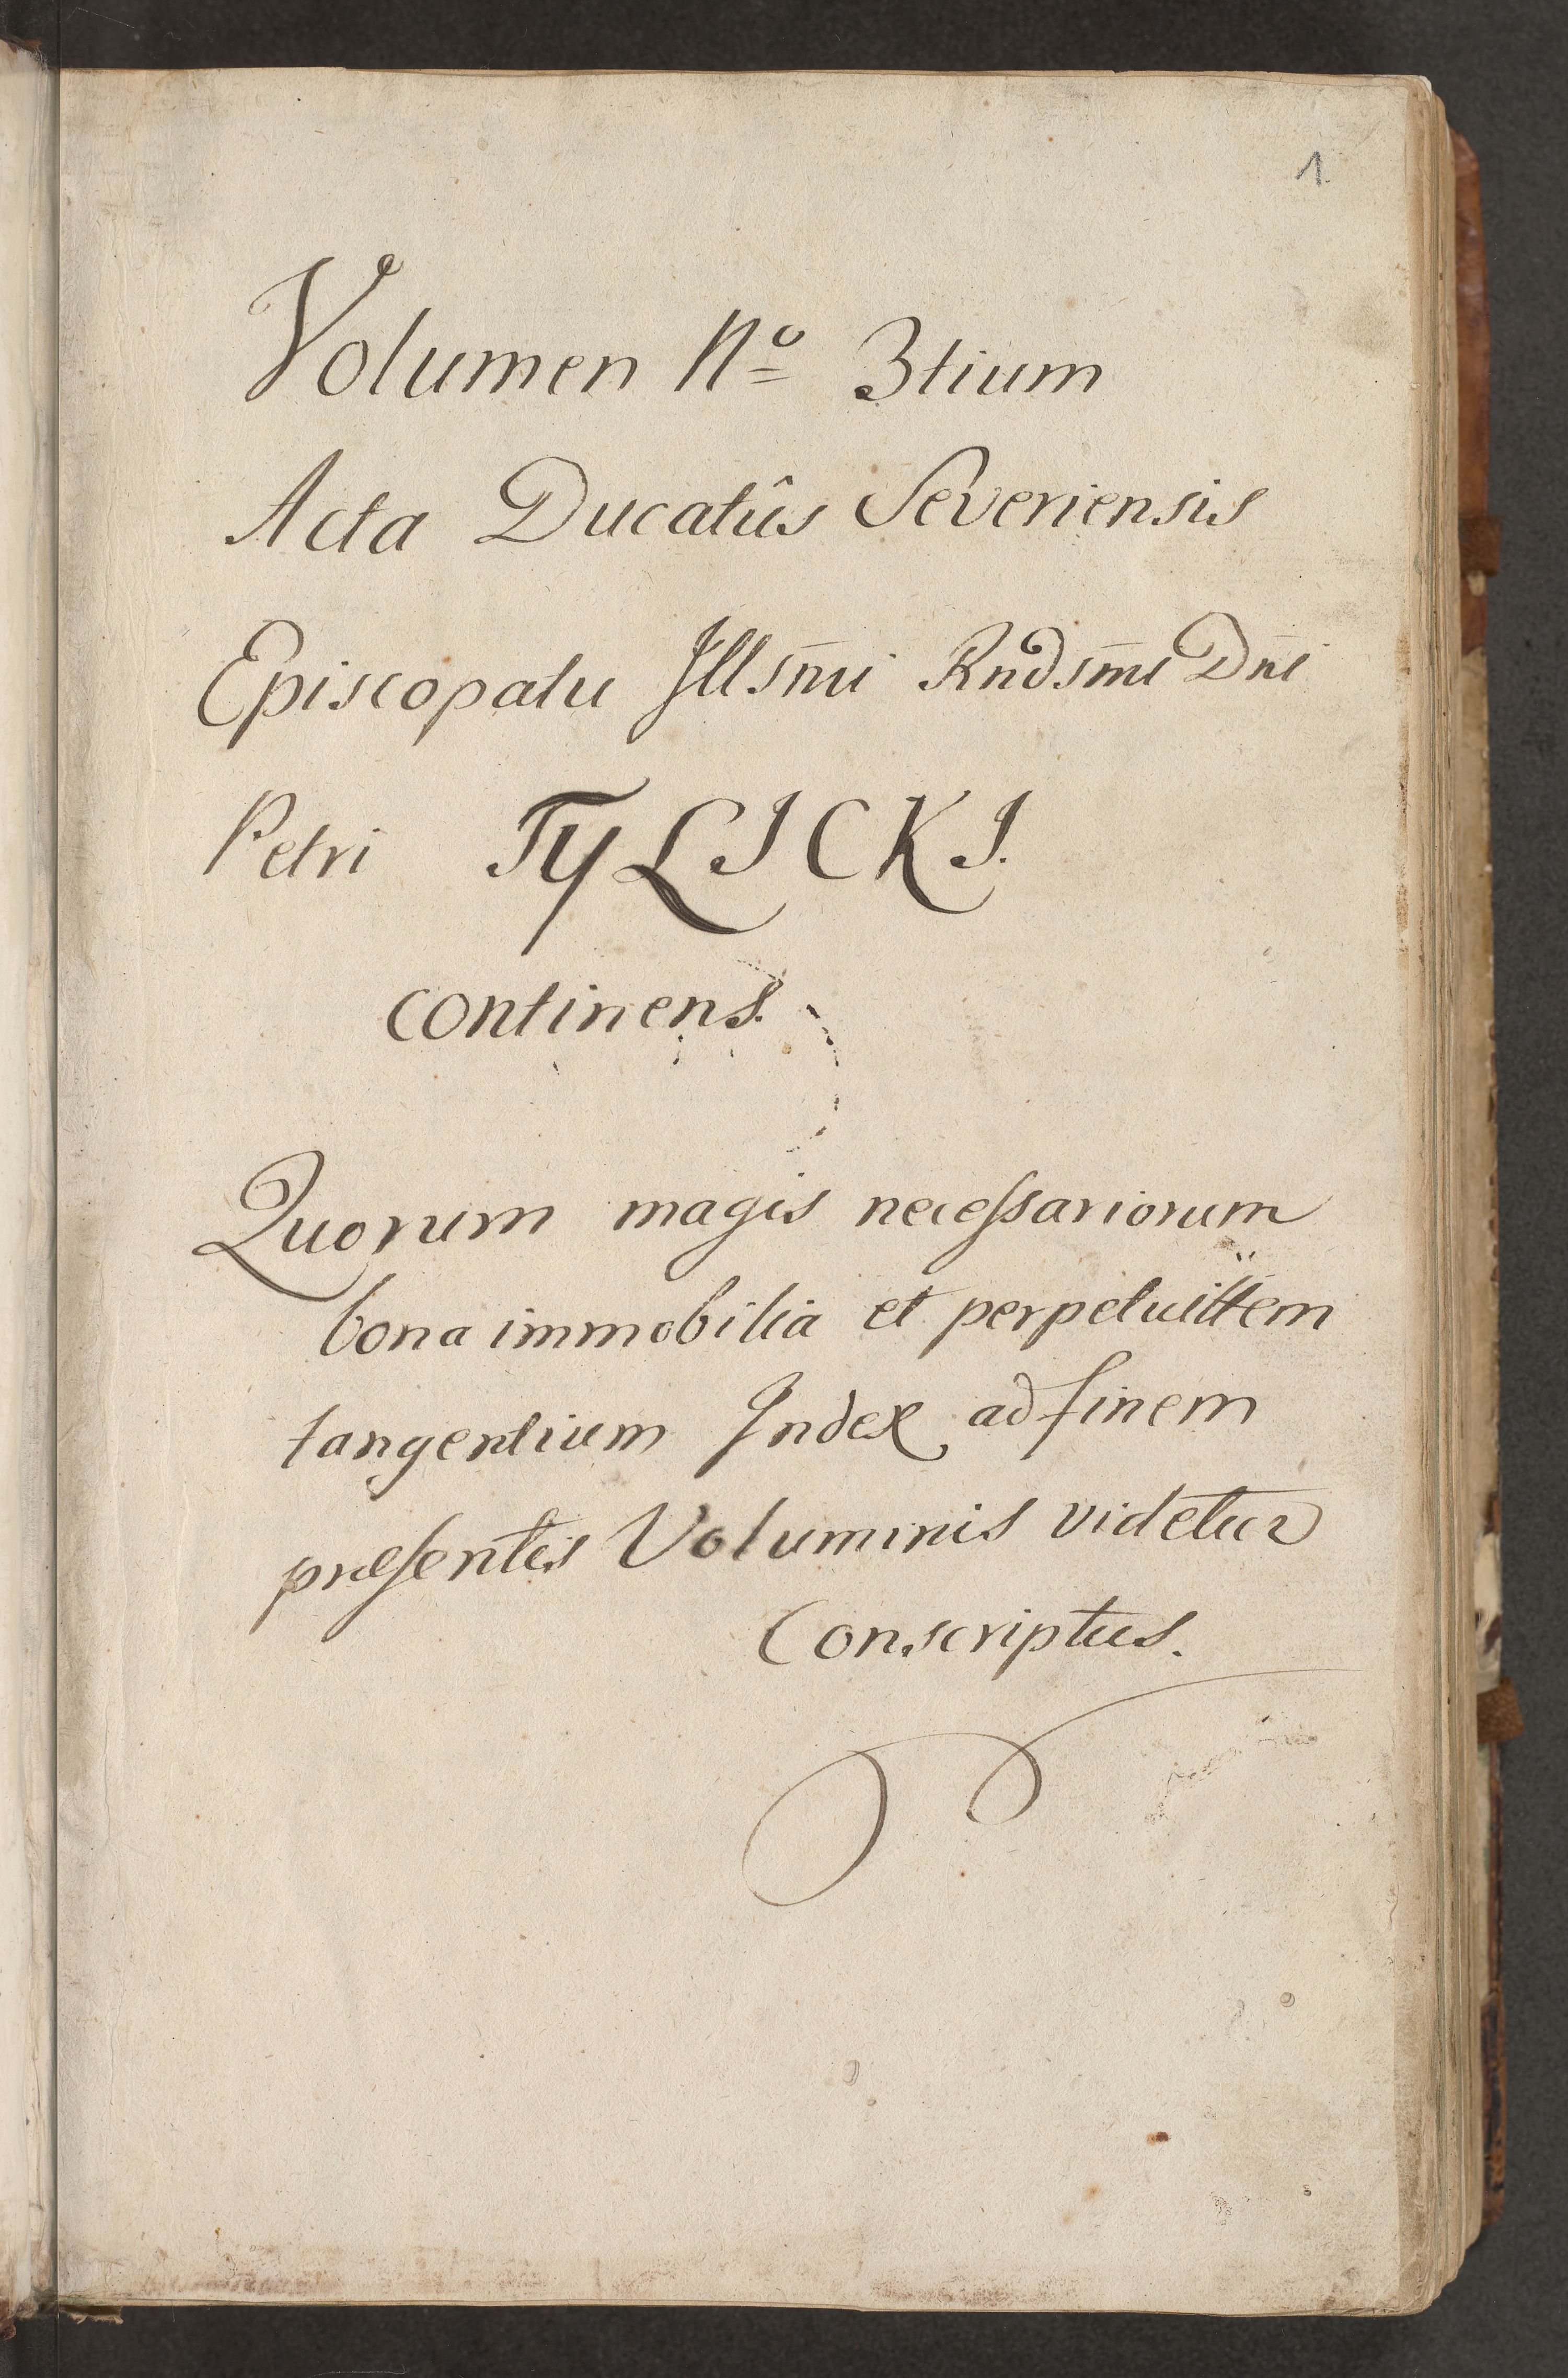 1.
Volumen No 3tium
Acta Ducatûs Severiensis
Episcopatu Jllsm̅i Rndsm̅i Dn̅i
Petri TyLJCKJ.
continens.
Quorum magis necessariorum
bona immobilia et perpetuittem
tangentium Jndex ad finem
præsentis Voluminis videtur
Conscriptus.